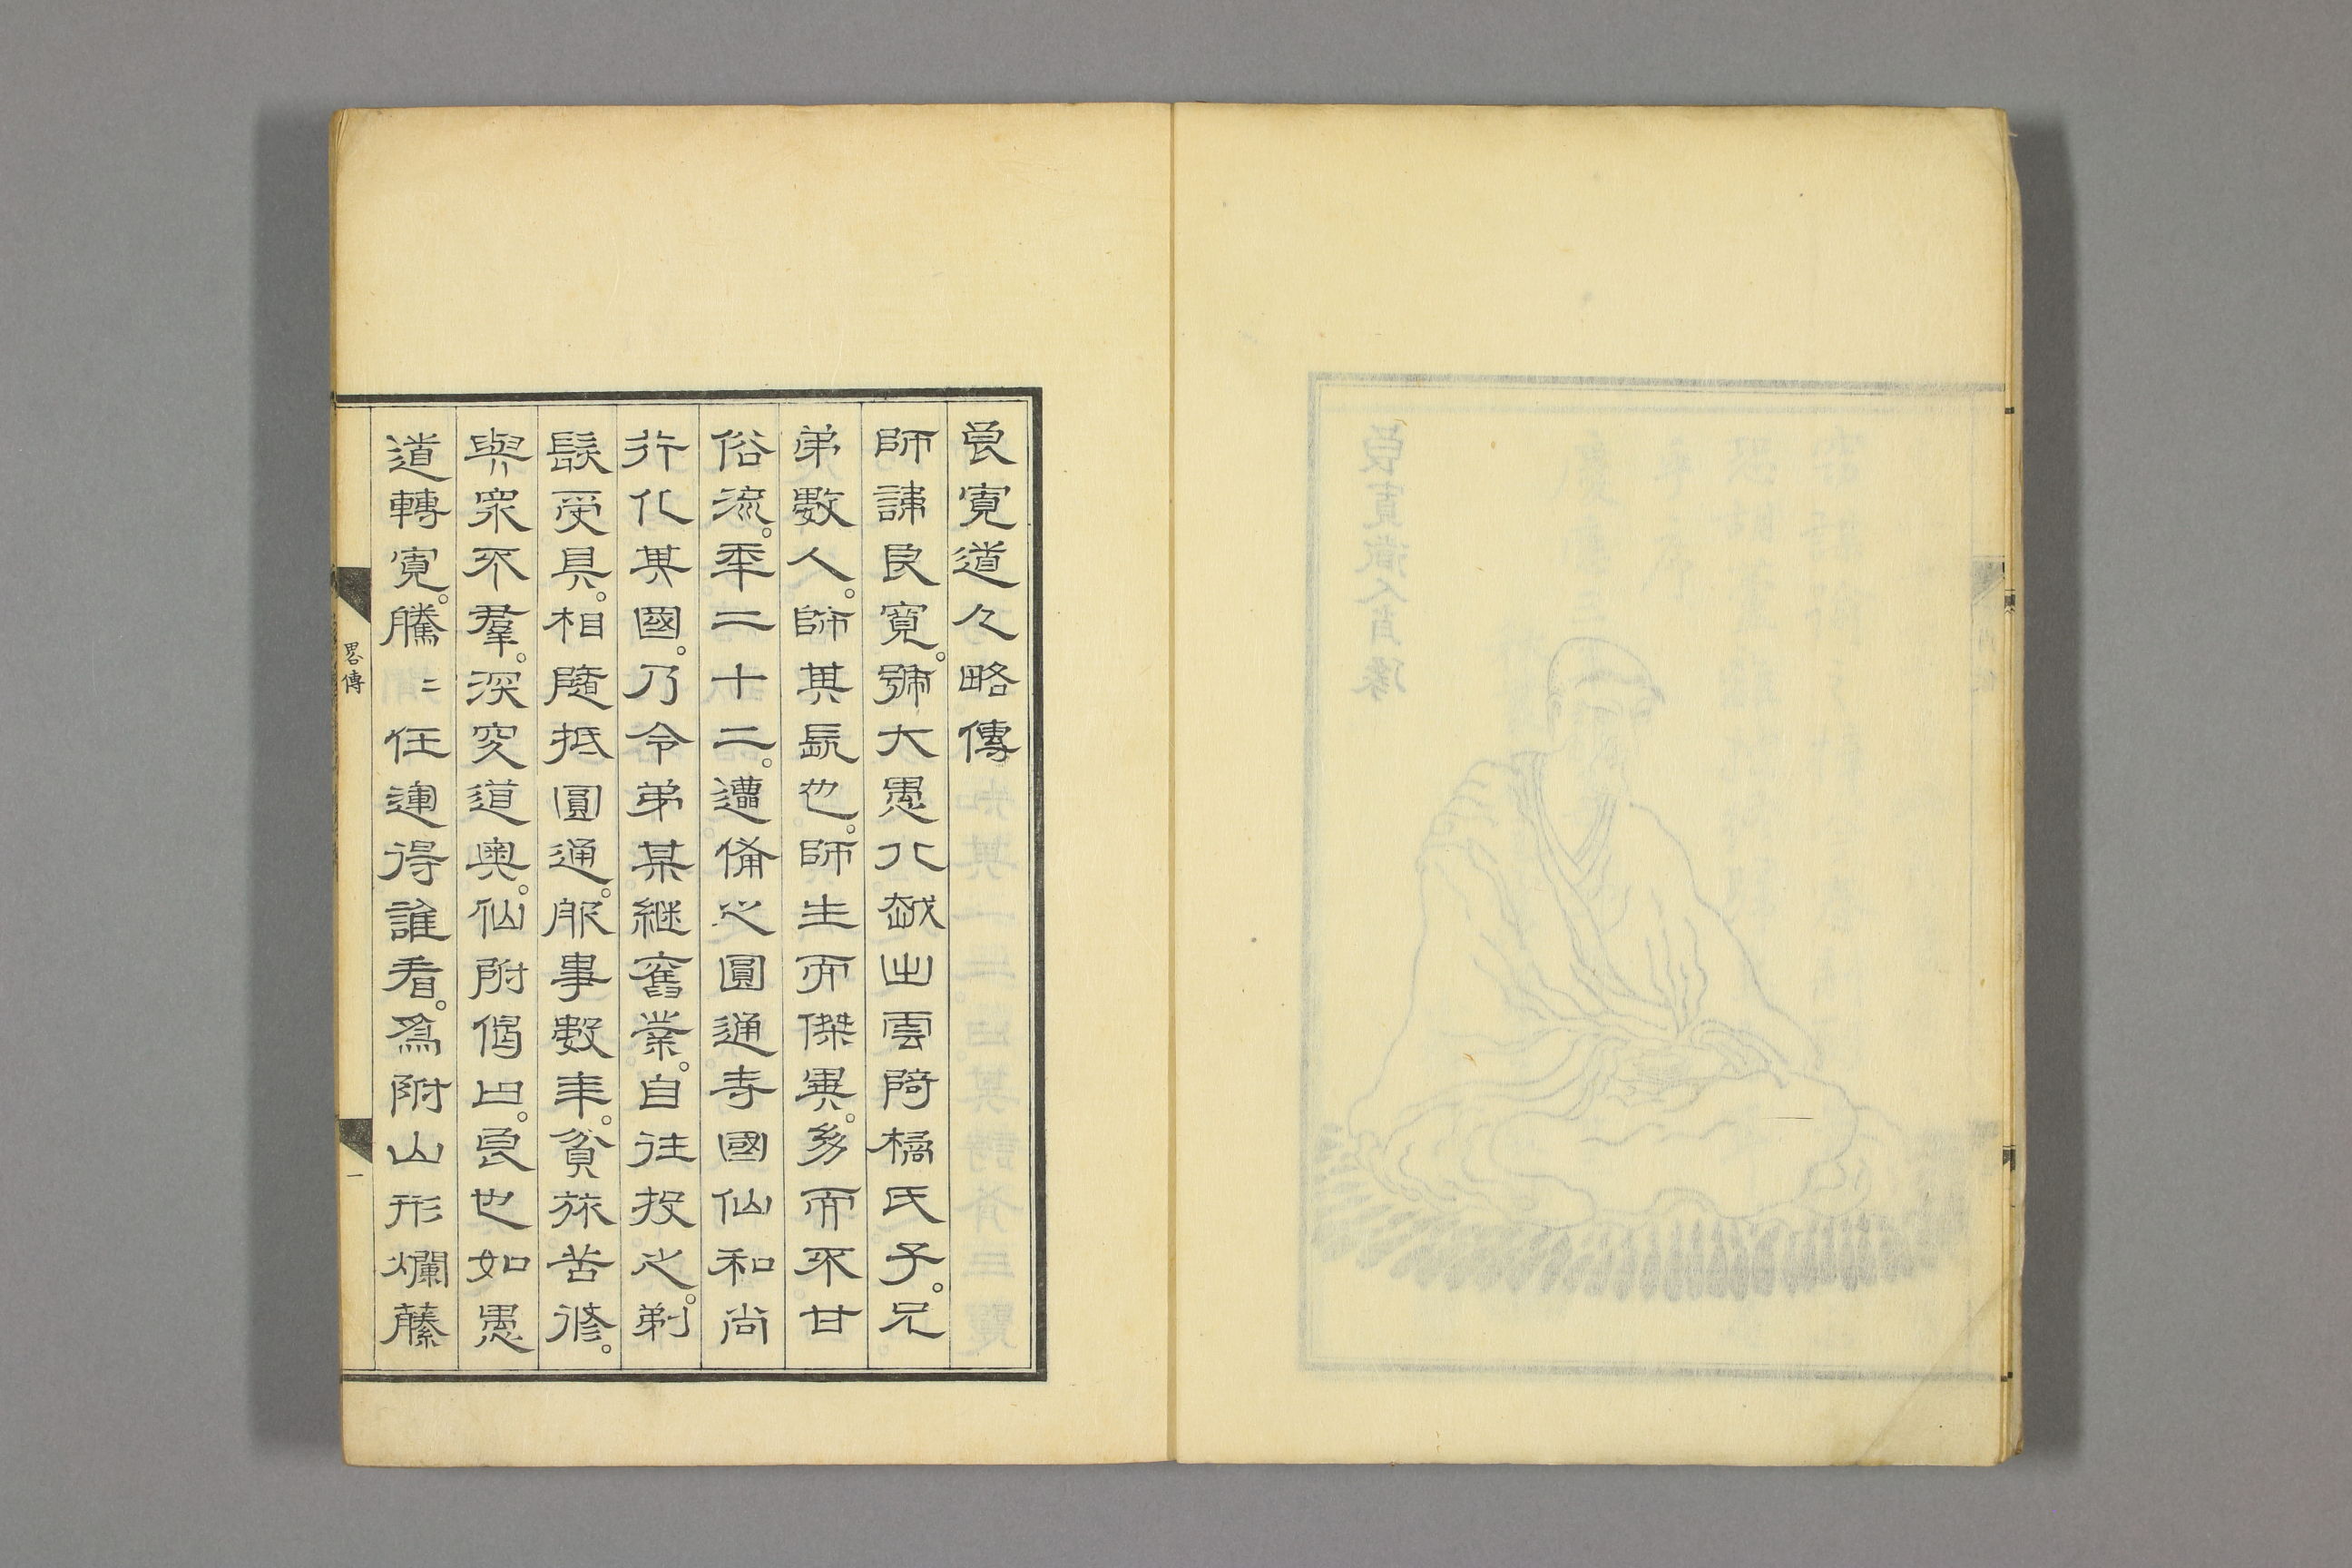 良寬道人略傳
師諱良寬。號大愚。北越出雲﨑橘氏子。兄
弟數人。師其長也。師生而傑異。幼而不甘
俗流。年二十二。遭備之圓通寺國仙和尚
行化其國。乃令弟某継舊業。自往投之。剃
髮受具。相隨抵圓通。服事數年。貧旅苦修。
與眾不羣。深究道奧。仙附偈曰。良也如愚
道轉寬。騰〻任運得誰看。為附山形爛藤
畧傳
一